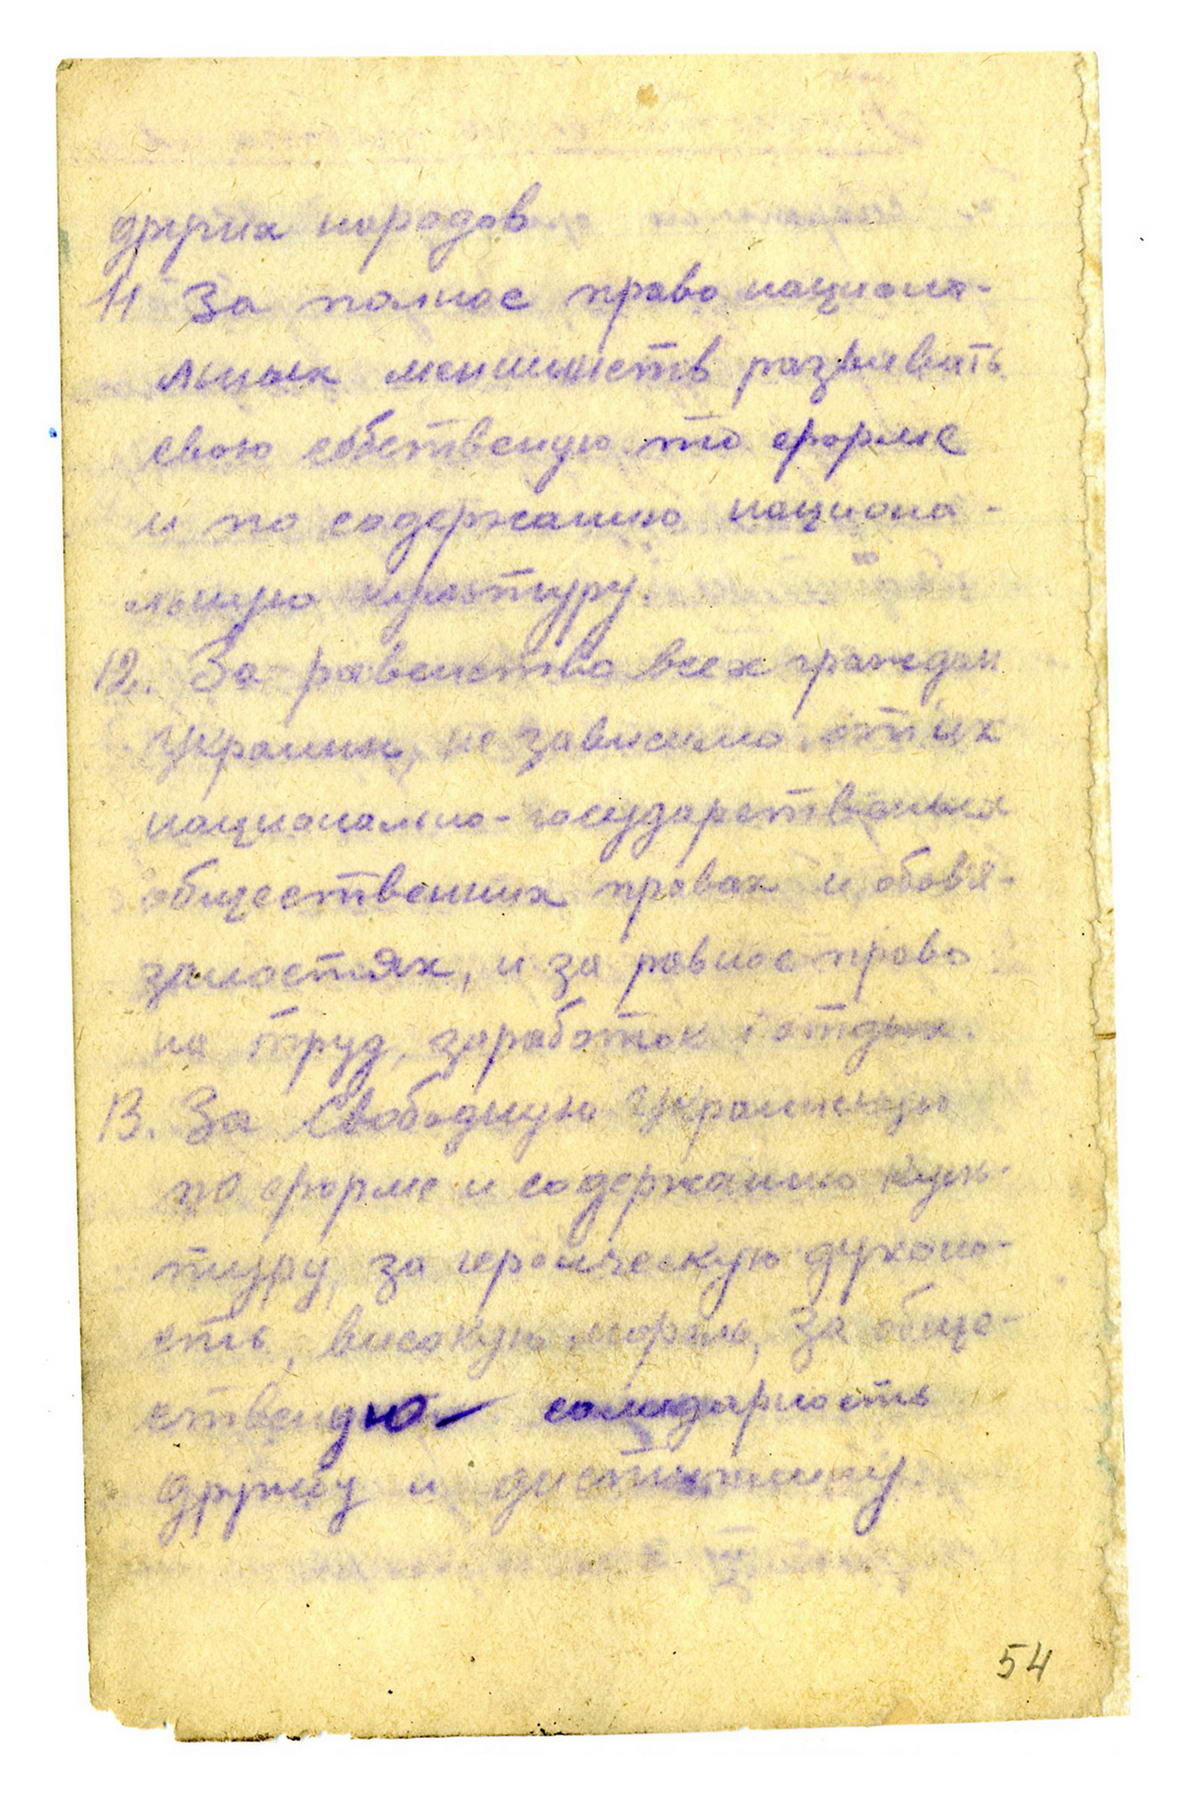 других народов
11 За полное право национа-
льных меншинств развивать
свою собственую по форме
и по содержанию национа-
льную культуру.
12. За равенство всех граждан
Украины, не зависимо от их
национально-государственных
общественних правах и обовя-
заностях, и за равное право
на труд, заработок і отдых.
13. За Свободную Украинскую
по форме и содержанию куль-
туру, за героическую духовно-
сть, високую мораль, за обще-
ственую солидарность
дружбу и дистиплину.
54